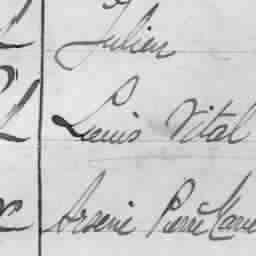 Julien
Louis Vital
Arsène Pierre Marie